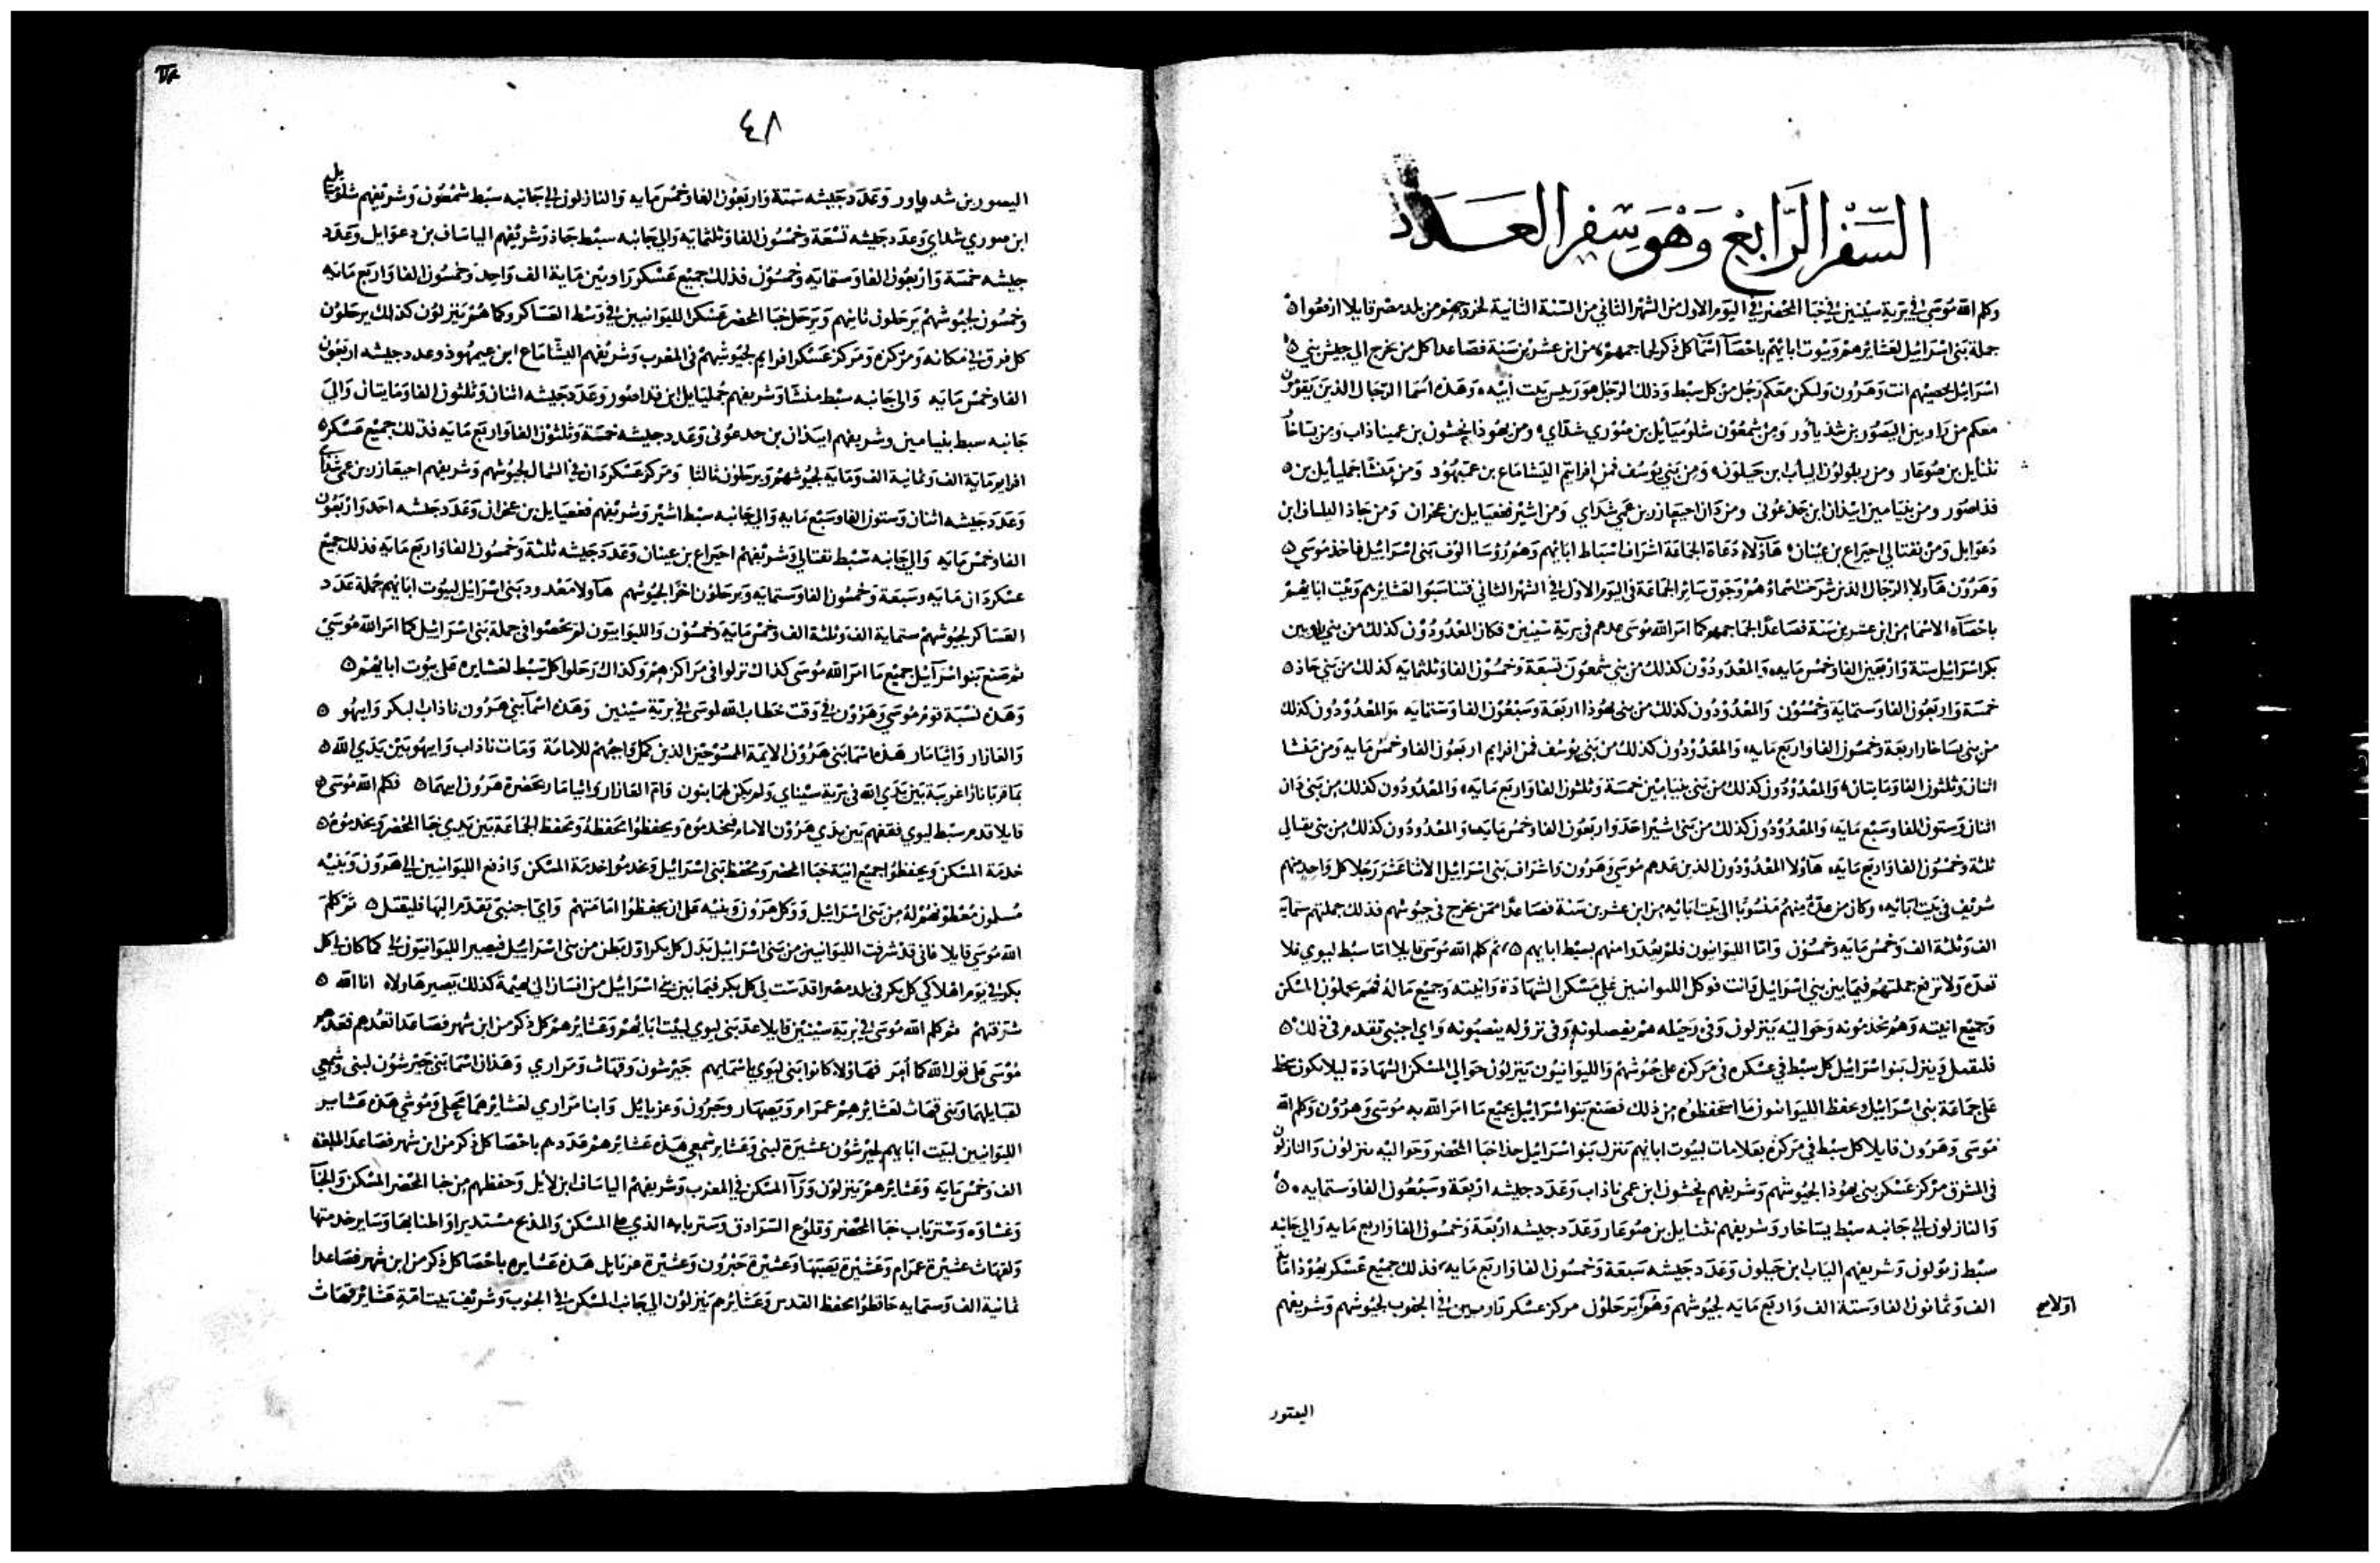 السِّفْر الرَّابِعْ وَهْوَ سِفر العَدَد
وكلم الله مُوسَى في بَرية سِينين في خِبَا المحْضر في اليَوم الاول من الشهر الثاني من السّنة الثانية لخروجهم من بلد مصر قايلا ارفعوا
جملة بَني اسْرَائيل لعَشايرهمْ وبيوت ابائهم باحْصَآ اسْمَآ كل ذكر لجماجمهمْ من ابن عشرين سَنة فصَاعدا كل من يخرج الي جيش بني
اسْرَائيل تحصيهم انت وَهَرُون وليكن معَكم رَجُل من كل سبْط وَذلك الرَجُل هو رييس بَيت ابيْه وَهَذه اسْمَا الرجَال الذينَ يَقفون
معكم من رَاوبين اليصُوْر بن شديأور وَمِن شِمعُوْن شلوميَأئيل بن صُوْري شدّاي ومن يهوذا نحشون بن عميناذاب وَمن يسَاخار
نثنأيل بن صُوغار ومن زبولوُن اليأب ابن حَيلون وَمِن بَني يوُسُف فمن افرايم اليْشامَاع بن عميْهُوْد وَمِن مَنشا جمليأيل بن
فذاصُور ومن بنيَامين ابيْذان ابن جَذعُوني ومن دَان احيعَازر بن عَمي شدَاي وَمن اشيْر فجعيايل بن عخران وَمن جَاذ الياساف ابن
دَعوَايل وَمن نفتالي احيراع بن عينان هَآولاء دعَاة الجمَاعَة اشرَاف اسْبَاط ابائهم وَهم رُؤسَا الوُف بَني اسْرَائيل فاخذ مُوسَي
وَهَرُوْن هَآولاء الرجال الذين شرحَت اسْماؤهمْ وَجوقَ سَاير الجمَاعَة في اليَوم الاول في الشهر الثاني فتنَاسَبُوا لعَشايرهم وَبيْت ابائهمْ
باحْصَآء الاسْمَا من ابن عشرين سَنة فصَاعدًا لجمَاجمهم كما امرَ الله مُوسَى عدهم في بَريّة سيْنين فكان المعْدُودُوْن كذلك من بَني راوبين
بكر اسْرَائيل ستة وَارْبعين الفا وَخمس مَايه وَالمعْدُودُوْن كذلك من بَني شمعُوْن تسْعَة وَخمسُوْن الفا وَثلثمايه كذلك من بَني جَاذ
خمسَة وَاربَعُون الفا وَستمايَة وَخمسُوْن وَالمعْدُودُوْن كذلك من بَني يهُوذا اربَعَة وسَبْعُوْن الفا وَستمايه وَالمعْدُوْدُون كذلك
من بني يسَاخار اربعَة وَخمسُون الفا وَاربع مَايه وَالمعْدُودُوْن كذلك من بَني يوسُف فمن افرايم اربَعُوْن الفا وَخمسُ مَايه وَمن مَنْشا
اثنان وَثلثون الفا وَمَايتان وَالمعْدُوْدُون كذلك من بَني بنيَامِين خمسَة وَثلثون الفا وَاربَع مَايَه وَالمعْدُودُون كذلك من بَني دَان
اثنان وَستون الفا وَسَبْع مَايَه وَالمعْدُوْدُون كذلك من بَني اشيْر احَد وَاربَعُوْن الفا وَخمس مَايَه وَالمعْدُودُون كذلك من بني نفتالي
ثلثة وَخمسُوْن الفا وَاربع مَايَه هَآولاء المعْدُوْدُون الذين عَدهم مُوسَي وَهَرُون وَاشرَاف بَني اسْرَائيل الاثنا عَشَرَ رَجُلا كل وَاحِد منهم
شريْف في بَيْت ابَائه وَكان من عدّة منهمْ مَنسُوبًا الى بَيْت ابَائه من ابن عشرين سَنة فصَاعدًا ممن يخرج في جيُوشهم فذلك جملتهم ستمَاية
الف وَثلثة الف وَخمسُ مَايه وَخمسُوْن وَامّا الليوَانيون فلم يعُدّوا منهم بسبْط ابايهم ثم كلم الله مُوسَى قايلا امّا سبْط ليوي فلا
تعدّه وَلا ترفع جملتهُمْ فيمَا بين بني اسْرَائيْل وَانت فوكل الليوانيين عَلى مَسْكن الشهَادَة وَانيته وَجميْع مَا لهُ فهُم يحملوْن المسْكن
وَجميْع انيته وَهُم يخدمُونه وَحوَاليْه يَنزلون وَفي رَحيْله هم يفصلونه وَفي نزوُله ينصبُونه وَاي اجنبي تقدم في ذلك
فليقتل وَينزل بَنوا اسْرَائيل كل سبْط في عسكره وفي مَركزه على جُيُوشهمْ وَالليوَانيُون يَنزلُون حوَالي المسْكن الشهَادَة ليلا يكون سَخط
عَلى جمَاعَة بني اسْرَائيل وَيحفظ الليوَانيون مَا استحفظوُه من ذلك فصَنع بَنوا اسْرَائيل بجميْع مَا امرَ الله به مُوسَى وَهرُوْن وَكلم الله
مُوسَى وَهَرُون قايلا كل سبْط في مركزه بعَلامات لبيُوت ابائهم تنزل بَنوا اسْرَائيل حذا خبَا المحْضر وَحوَاليْه ينزلون وَالنازلون
في المشرق مركز عَسْكر بني يهُوْذا لجيُوشهم وَشريفهم نحشون ابن عمي ناذاب وَعَدَد جيشه اربَعَة وَسَبْعُون الفا وَستمايه
وَالنازلون الي جَانبه سبْط يسَاخار وَشريفهم نثنايل بن صُوغار وَعَدَد جيشه ارْبَعَة وَخمسُون الفا وَاربع مَايه وَالي جَانبه
سبْط زبولون وَشريفهم الياب ابن حَيلون وَعَدَد جيشه سَبعَة وَخمسُون الفا وَاربَع مَايه فذلك جميْع عَسْكر يهُوْذا مَاية
الف وَثمانون الفا وَستة الف وَاربَع مَايَه لجيُوشهم وَهمْ يَرحَلوُن مركز عسْكر راوبين في الجنوب لجيُوشهم وَشريفهم
اوّلا صح
اليصور
٤٨
اليصور بن شدياور وَعَدَد جَيْشه ستة وَاربَعُوْن الفا وَخمْسُ مَايه وَالنازلون الي جَانبه سبْط شمعُوْن وَشريْفهم شلوميَايل
ابن صوري شداي وَعدَد جَيْشه تسْعَة وخمسُون الفا وَثلثمايَه وَالي جَانبه سبْط جَاذ وَشريْفهم الياسَاف بن دعوَايل وَعَدَد
جيشه خمسَة وَارْبَعُون الفا وَستمايَه وَخمسُوْن فذلكَ جميْع عَسْكر رَاوبيْن مَاية الف وَاحِد وَخمسُون الفا وَاربَع مَايَه
وَخمسُون لجيُوشهمْ يَرحَلون ثانيهم وَيَرحَل خبَا المحضر عَسْكر الليوَانيين في وَسْط العسَاكر وكما همْ يَنزلون كذلك يرحَلوْن
كل فرق في مَكانه وَمركزه وَمركز عَسْكر افرايم لجيُوشهم في المغرب وَشريفهم اليشامَاع ابن عيمهُوذ وعدد جيشه اربَعُون
الفا وَخمسُ مَايَه وَالي جَانبه سبْط منشا وَشريفهم جُمليَايل ابن فداصُور وَعَدَد جَيشه اثنان وَثلثون الفا وَمَايتان وَالي
جَانبه سبط بنيامين وشريفهم ابيْذان بن جدعُوني وَعَدَد جيشه خمسَة وَثلثون الفا وَاربَع مَايَه فذلك جميْع عَسْكر
افرايم مَاية الف وَثمانية الف وَمَايَه لجيُوشهم وَيرحَلون ثالثا وَمركز عَسْكر دَان في الشمال لجيُوشهم وَشريفهم احيعَازر بن عمي شدَاي
وَعَدَد جَيشه اثنان وَستون الفا وَسَبْع مَايه وَالي جَانبه سبْط اشيْر وَشريْفهم فجعيَايل بن عخران وَعَدَد جَيشه احَد وَارْبَعُون
الفا وَخمسُ مَايَه وَالي جَانبه سَبْط نفتالي وَشريْفهم احيَراع بن عينان وَعَدَد جَيشه ثلثة وَخمسُون الفا وَاربَع مَايَه فذلك جميْع
عسْكر دَان مَايه وَسَبعَة وَخمسُون الفا وَستمايه وَيَرحَلوْن اخرًا لجيُوشهم هَآولا مَعْدود بَني اسْرَائيل لبيُوت ابائهم جُملة عَدَد
العَسَاكر لجيُوشهمْ ستماية الف وَثلثة الف وَخمسُ مَايَة وَخمسُوْن وَالليوَانيون لم يحصُوا في جملة بَني اسْرَائيل كما امرَ الله مُوسَي
ثم صَنع بَنوا اسْرَآئيل جميْع مَا امرَ الله مُوسَى كذاك نزلوا في مَراكزهمْ وَكذاك رَحلوا كل سَبْط لعَشايره عَلى بيُوت ابائهمْ
وَهَذه نسْبَة توم مُوسَي وَهَرُوْن في وَقت خطَاب الله لموسَى في بريّة سَينين وَهَذه اسْمَآ بَني هَرُون ناذاب البكر وَابيهو
وَالعَازار وَايثامَار هَذه اسْمَا بَني هَرُوْن الايمة الممسُوْحيْن الذين كمل وَاجبُهمْ للامَامَة وَمَات ناذاب وَابيهُو بَيْن يَدَي الله
بمَا قربَا نارًا غريبَة بَيْن يَدَي الله في بَرية سيْناي وَلم يكن لهمَا بنون وَامّ العَازار وَايثامَار بحَضرة هَرُون ابيهمَا فكلم الله مُوسَى
قايلا قدم سبْط ليوي فقفهم بَيْن يدَي هَرُوْن الامام فيخدمُوه وَيحفظوُا محفظه وَمحفظ الجمَاعَة بَيْن يدي خبَا المحْضر وَيخدمُوْه
خدمَة المسْكن وَيحفظوُا جميْع انيَة خبَا المحضر وَمحفظ بَني اسْرَائيل وَيخدمُوا خدمَة المسْكن وَادفع الليوَانيين الي هَرون وَبَنيْه
مُسلمون مُعْطَوْنهُمْ لهُ من بَني اسْرَائيل وَوَكل هَرُون وَبَنيْه عَلى ان يحفظوُا امَامَتهمْ وَاي اجنبي تقدم اليهَا فليقتل ثم كلمَ
الله مُوسَي قايلا فاني قد شرفت الليوَانيين من بَني اسْرَائيل بَدَل كل بكر اوّل بَطن من بني اسْرَائيل فيصير الليوَانيون لي كما كان لي كل
بكر في يَوم اهْلاكي كل بكر في بلد مصر اقدَست لي كل بكر فيمَا بَين بَني اسْرَائيل من انسَان الي بهيْمة كذلك يَصير هَاولاء انا الله
شرفتهمْ ثم كلم الله مُوسَى في بَريّة سيْنين قايلا عدّ بَني ليوي لبَيْت ابَائهمْ وَعَشايرهمْ كل ذكر من ابن شهر فصَاعَدا تعُدهم فعَدهم
مُوْسَى عَلى قول الله كما أمر فهَاوُلا كانوا بَني ليَوي باسْمايهم جَيْرشون وَقهَاث وَمَراري وَهَذان اسْمَا بَني جَيْرشوُن لبنى وَشمعي
لقبَايلهمَا وَبَني قهَاث لعَشايرهِمْ عمرَام وَيَصهَار وحَبرُون وَعزيايل وَابنا مَراري لعَشايرهمَا محلي وَمُوشي هَذه عَشاير
الليوَانيين لبَيْت ابائهم لجيْرشوُن عَشيرَة لبنى وَعَشايرَ شمعي هَذه عَشايرهمْ عَدَدهم باحْصَا كل ذكر من ابن شهر فصَاعَدا سَبْعَة
الف وَخمسُ مَايَه وَعَشايرهمْ يَنزلون وَرَآ المسْكن في المغرب وَشريفهم الياسَاف ابن لايْل وَحفظهم من خبا المحْضر المسْكن وَالخبَآ
وَغشاوُه وَسَترباب خبَا المحضر وَقلوْع السّرَادق وَسَتر بابه الذي على المسْكن وَالمذبح مسْتديرا وَاطنابهَا وَسَاير خدمتها
وَلقهَاث عشيْرَة عمرَام وَعَشيْرَة يصهَار وَعشيْرَة حَبْرُون وَعشيْرَة عزيايل هَذه عَشايره باحْصَا كل ذكر من ابن شهر فصَاعدا
ثمانيَة الف وَستمايَه حَافظوُا محفظ القدس وَعَشايرهم يَنزلون الي جَانب المسْكن في الجنوب وَشريْف بَيت امّة عَشاير قهَاث